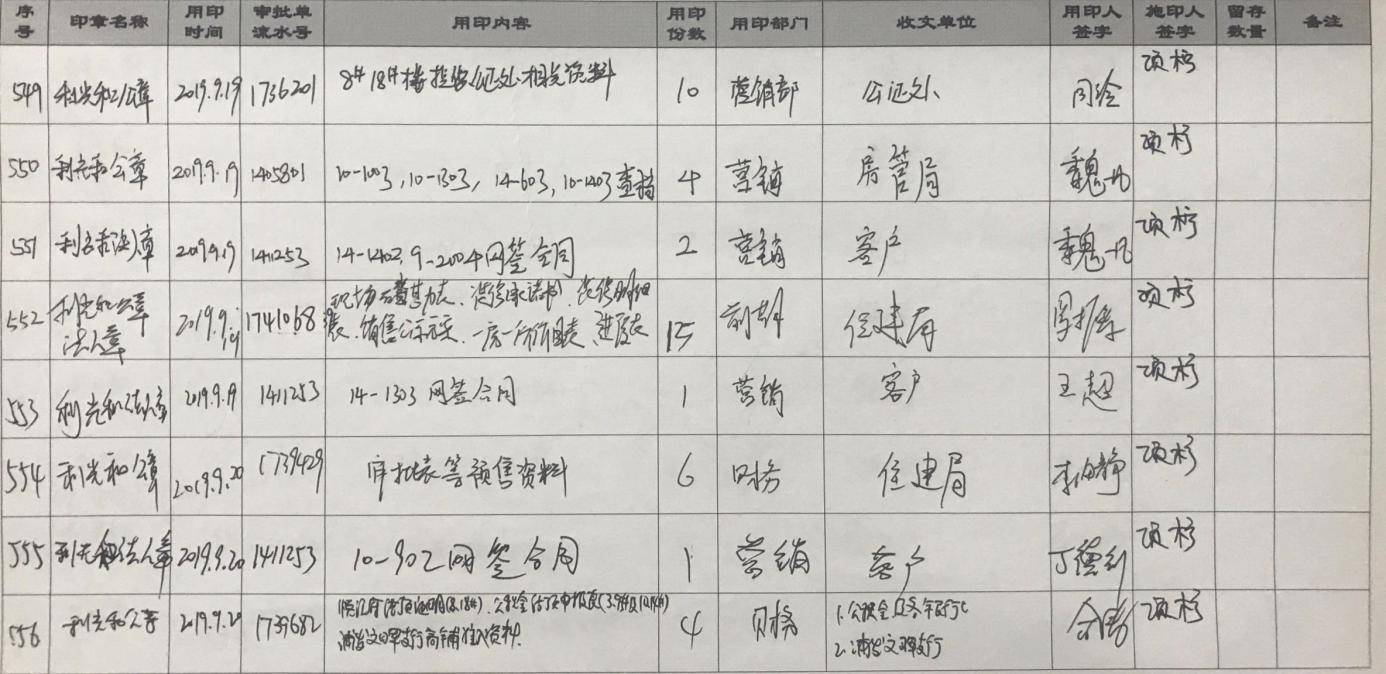 序号 印章名称 用印时间 审批单流水号 用印内容 用印份数 用印部门 收文单位 用印人签字 施印人签字 留存数量 备注
549 利光和公章 2019.9.19 1736201 8# 18#楼 公证处相关资料 10 营销部 公证处 项杉
550 利光和公章 2019.9.19 1405801 10-1003, 10-1303, 14-603, 10-1403查档 4 营销 房管局 魏凡 项杉
551 利光和法人章 2019.9.19 1411253 14-1402, 9-2004网签合同 2 营销 客户 魏凡 项杉
552 利光和公章 2019.9.19 1741068 现场 装修承诺书、装修明细
法人章 表、销售公示 、一房一价 表、进度表 15 前期 住建局 项杉
553 利光和法人章 2019.9.19 1411253 14-1303 网签合同 1 营销 客户 王超 项杉
554 利光和公章 2019.9.20 1739429 审批表等预售资料 6 财务 住建局 项杉
555 利光和法人章 2019.9.20 1411253 10-902网签合同 1 营销 客户 丁德利 项杉
556 利光和公章 2019.9.20 1739682 4 财务 1.公积金 项杉
支行商铺准入资料 2.浦发文晖支行